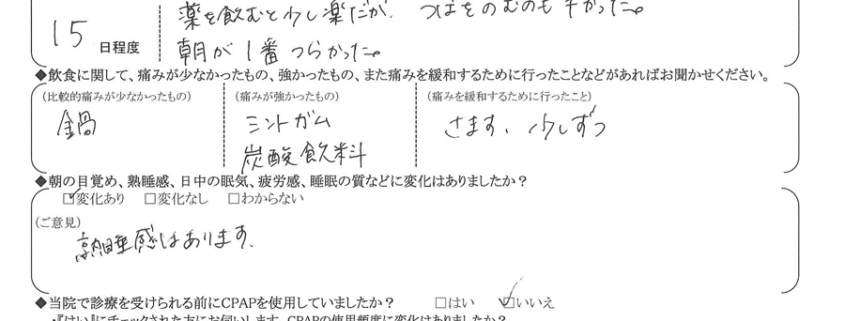 薬を飲むと少し楽だが、つばをのむのも辛かった。
15 日程度
朝が1番つらかった。
◆飲食に関して、痛みが少なかったもの、強かったもの、また痛みを緩和するために行ったことなどがあればお聞かせください。
(比較的痛みが少なかったもの) (痛みが強かったもの) (痛みを緩和するために行ったこと)
鍋 ミントガム さます、少しずつ
炭酸飲料
◆朝の目覚め、熟睡感、日中の眠気、疲労感、睡眠の質などに変化はありましたか?
☑変化あり □変化なし □わからない
(ご意見)
熟睡感はあります。
◆当院で診療を受けられる前にCPAPを使用していましたか? □はい ☑いいえ
・『はい』にチェックされた方にお伺いします。CPAPの使用頻度に変化はありましたか?